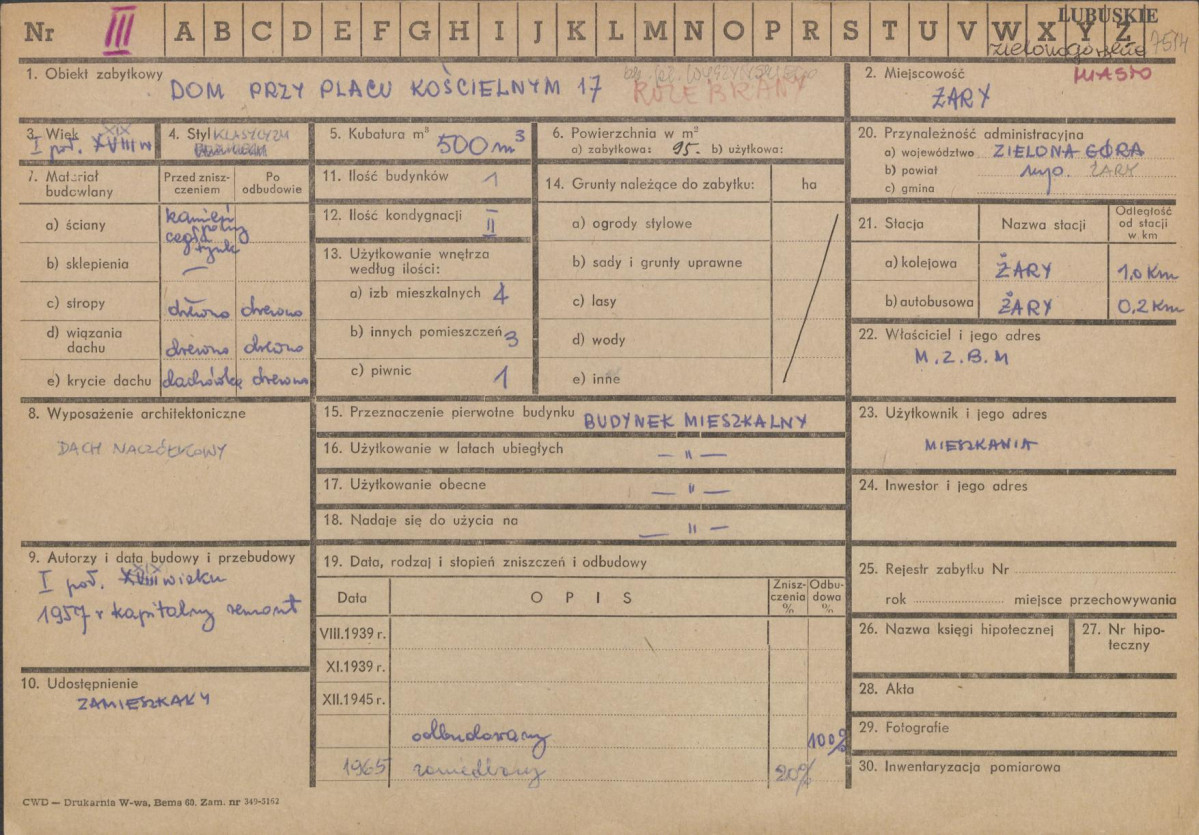 Nr III A B C D E F G H I J K L M N O P R S T U V W X Y Z LUBUSKIE
zielonogórskie 7514
1. Obiekt zabytkowy
DOM PRZY PLACU KOŚCIELNYM 17
ROZEBRANY
2. Miejscowość MIASTO
ŻARY
3. Wiek
XIX
I poł. XVIII w
4. Styl KLASYCYZM
5. Kubatura m³
500 m³
6. Powierzchnia w m²
a) zabytkowa: 95. b) użytkowa:
7. Materiał budowlany
Przed zniszczeniem
Po odbudowie
a) ściany
kamień
polny
cegła
tynk
b) sklepienia —
c) stropy drewno drewno
d) wiązania dachu drewno drewno
e) krycie dachu dachówka drewno
8. Wyposażenie architektoniczne
DACH NACZÓŁKOWY
9. Autorzy i data budowy i przebudowy
XIX
I poł. XVIII wieku
1957 r kapitalny remont
10. Udostępnienie
ZAMIESZKAŁY
11. Ilość budynków 1
12. Ilość kondygnacji II
13. Użytkowanie wnętrza
według ilości:
a) izb mieszkalnych 4
b) innych pomieszczeń 3
c) piwnic 1
14. Grunty należące do zabytku: ha
a) ogrody stylowe
b) sady i grunty uprawne
c) lasy
d) wody
e) inne
15. Przeznaczenie pierwotne budynku BUDYNEK MIESZKALNY
16. Użytkowanie w latach ubiegłych — " —
17. Użytkowanie obecne — " —
18. Nadaje się do użycia na — " —
19. Data, rodzaj i stopień zniszczeń i odbudowy
Data
OPIS
Zniszczenia %
Odbudowa %
VIII.1939 r.
XI.1939 r.
XII.1945 r.
odbudowany 100%
1965 zaniedbany 20%
20. Przynależność administracyjna
a) województwo ZIELONA GÓRA
b) powiat ŻARY
c) gmina
21. Stacja
Nazwa stacji
Odległość od stacji w km
a) kolejowa ŻARY 1,0 Km
b) autobusowa ŻARY 0,2 Km
22. Właściciel i jego adres
M.Z.B.M
23. Użytkownik i jego adres
MIESZKANIA
24. Inwestor i jego adres
25. Rejestr zabytku Nr
rok miejsce przechowywania
26. Nazwa księgi hipotecznej
27. Nr hipoteczny
28. Akta
29. Fotografie
30. Inwentaryzacja pomiarowa
CWD — Drukarnia W-wa, Bema 60. Zam. nr 349-5162